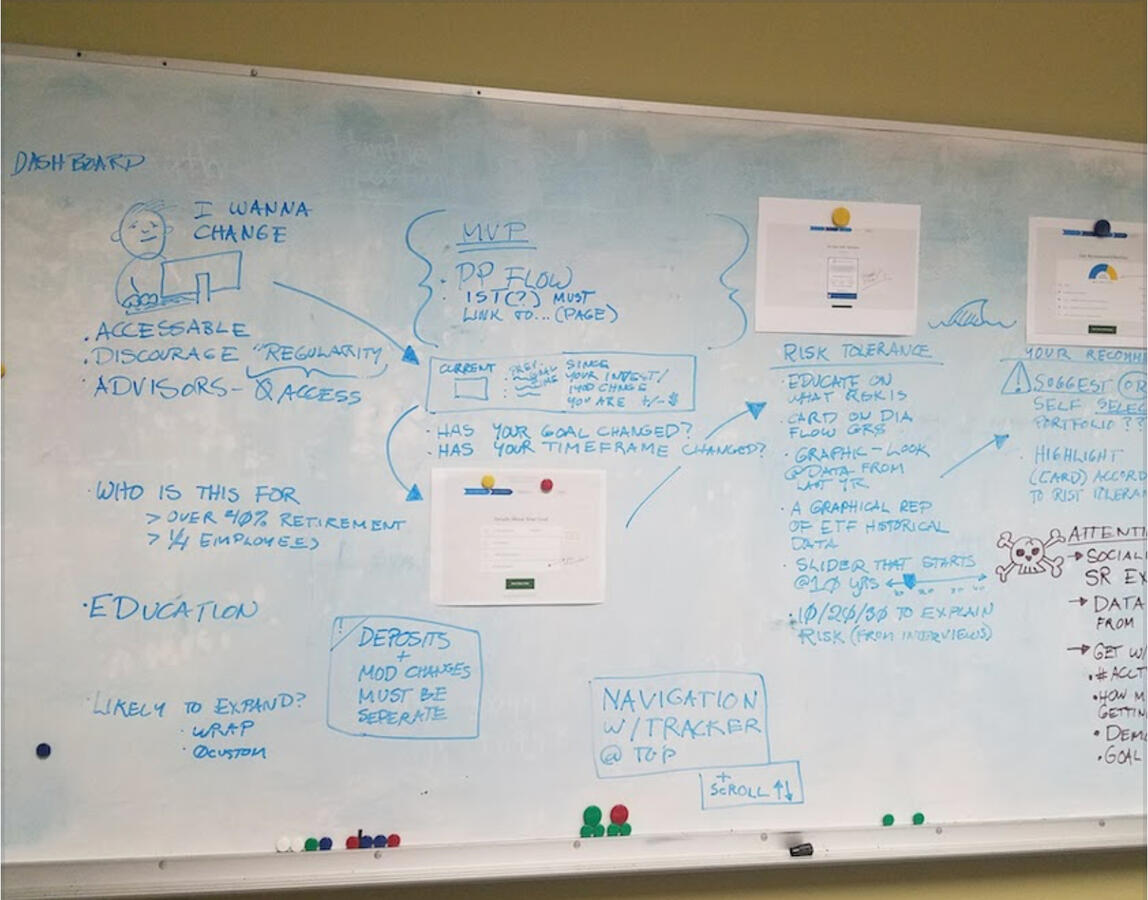 DASHBOARD
I WANNA
CHANGE
· ACCESSABLE
· DISCOURAGE "REGULARITY
· ADVISORS - Ø ACCESS
· WHO IS THIS FOR
> OVER 40% RETIREMENT
> 1/4 EMPLOYEE(S)
· EDUCATION
· LIKELY TO EXPAND?
· WRAP
· ØCUSTOM
MVP
· PP FLOW
· 1ST(?) MUST
LINK TO... (PAGE)
CURRENT
GOAL
SINCE
YOUR INVEST/
CHNGE
YOU ARE +/- $
· HAS YOUR GOAL CHANGED?
· HAS YOUR TIMEFRAME CHANGED?
Details About Your Goal
! DEPOSITS
+
MOD CHANGES
MUST BE
SEPERATE
NAVIGATION
W/TRACKER
@ TOP
+
SCROLL ↑↓
RISK TOLERANCE
· EDUCATE ON
WHAT RISK IS
· CARD ON DIA
FLOW GRS
· GRAPHIC - LOOK
@DATA FROM
LAST YR
· A GRAPHICAL REP
OF ETF HISTORICAL
DATA
· SLIDER THAT STARTS
@10 YRS
· 10/20/30 TO EXPLAIN
RISK (FROM INTERVIEWS)
YOUR RECOMM
! SUGGEST OR
SELF SELE
PORTFOLIO ??
· HIGHLIGHT
(CARD) ACCORD
TO RISK TOLERA
ATTENTI
→ SOCIAL
SR EX
→ DATA
FROM
→ GET W/
· # ACCT
· HOW M
GETTIN
· DEMO
· GOAL